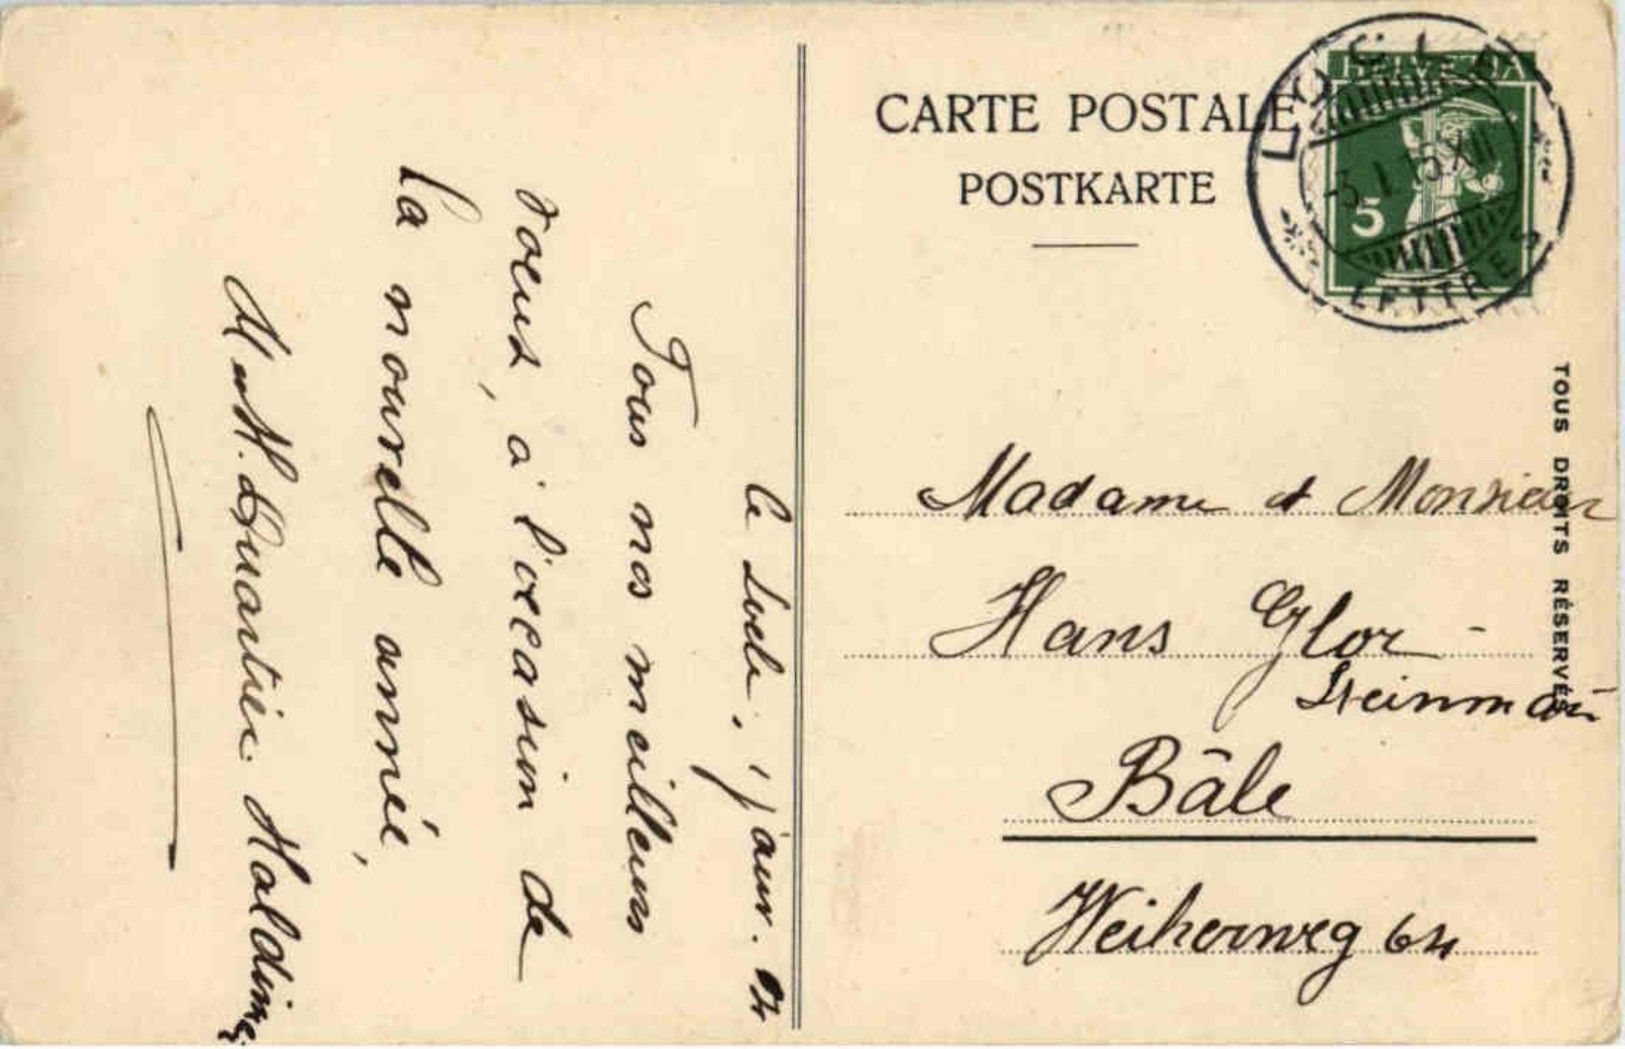 CARTE POSTALE
POSTKARTE
HELVETIA
5
-3.I.15.XII
LETTRES
TOUS DROITS RÉSERVÉS
le Locle, 1 janv.
Tous nos meilleurs
voeux, à l'occasion de
la nouvelle année,
M. Quartier Haldimann
Madame et Monsieur
Hans Glor-
Steinmann
Bâle
Weiherweg 64